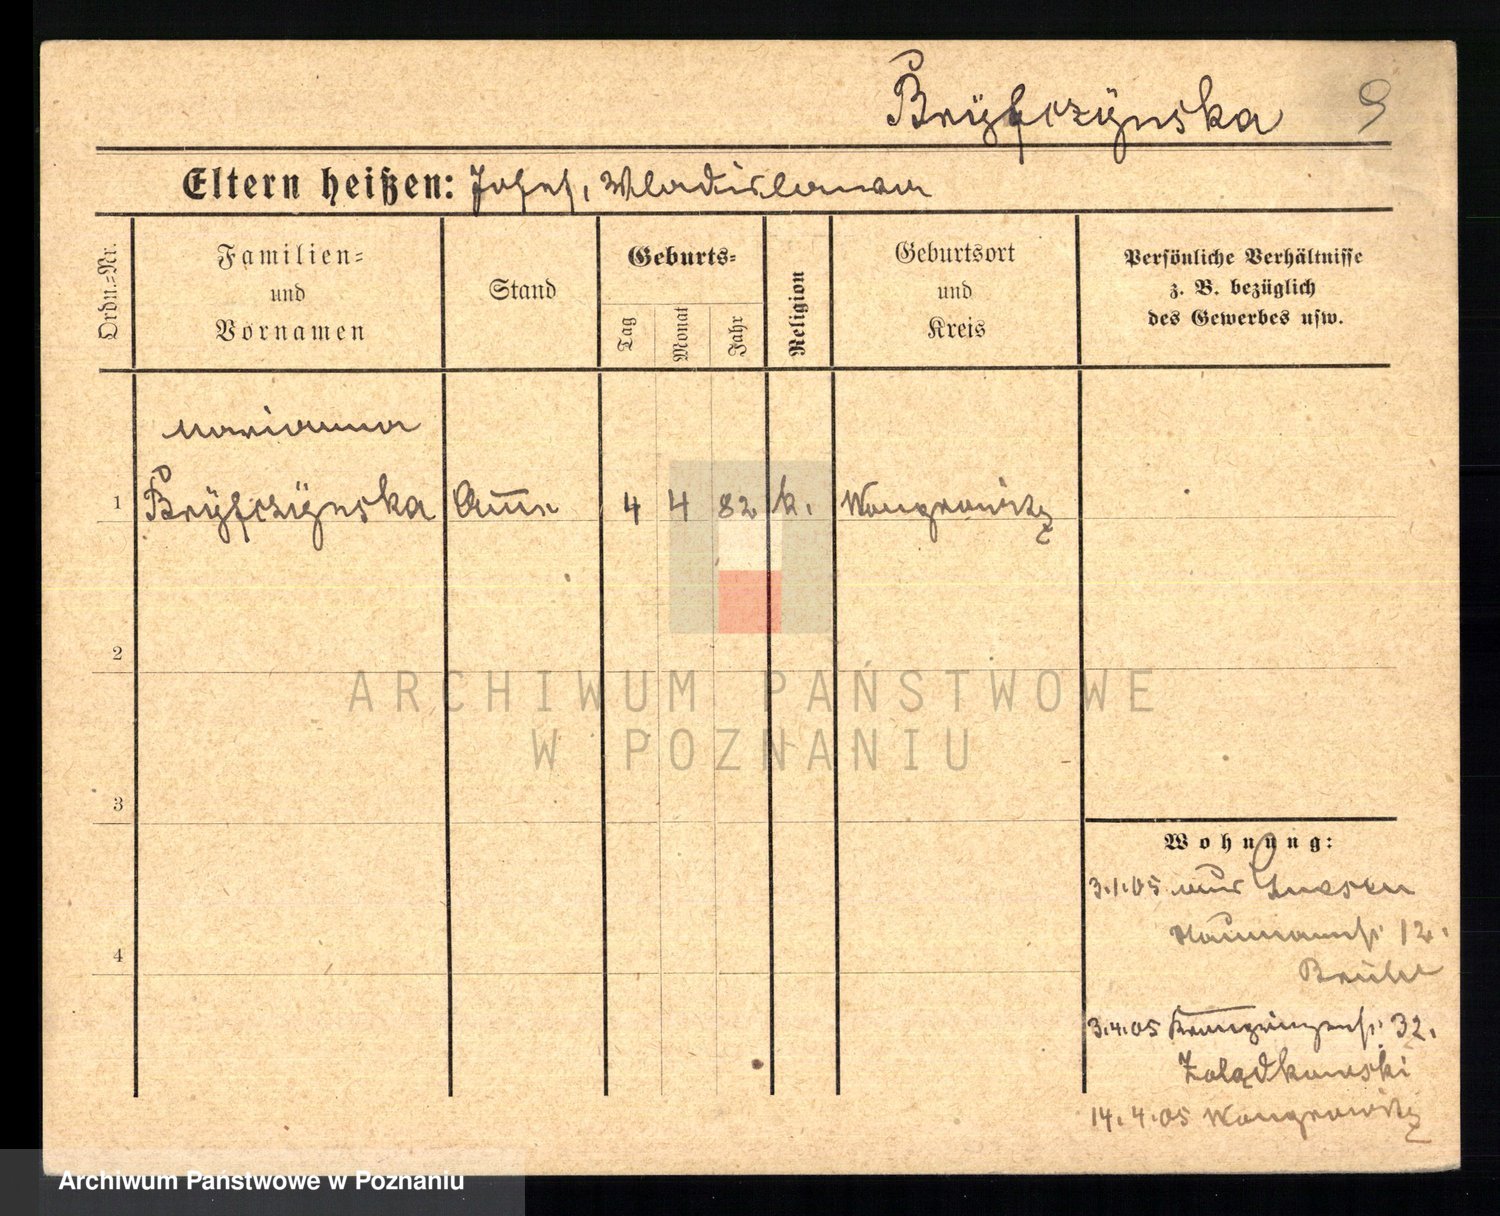 Bryfczynska 9
Eltern heißen: Josef, Wladislawa
Ordn.=Nr.
Familien=
und
Vornamen
Stand
Geburts=
Tag
Monat
Jahr
Religion
Geburtsort
und
Kreis
Persönliche Verhältnisse
z. B. bezüglich
des Gewerbes usw.
Marianna
1 Bryfczynska 4 4 82 k. Wongrowitz
2
3
4
Wohnung:
3.1.05 aus Gnesen
12.
Brühl
3.4.05 32.
Zolądkowski
14.4.05 Wongrowitz
ARCHIWUM PAŃSTWOWE
W POZNANIU
Archiwum Państwowe w Poznaniu